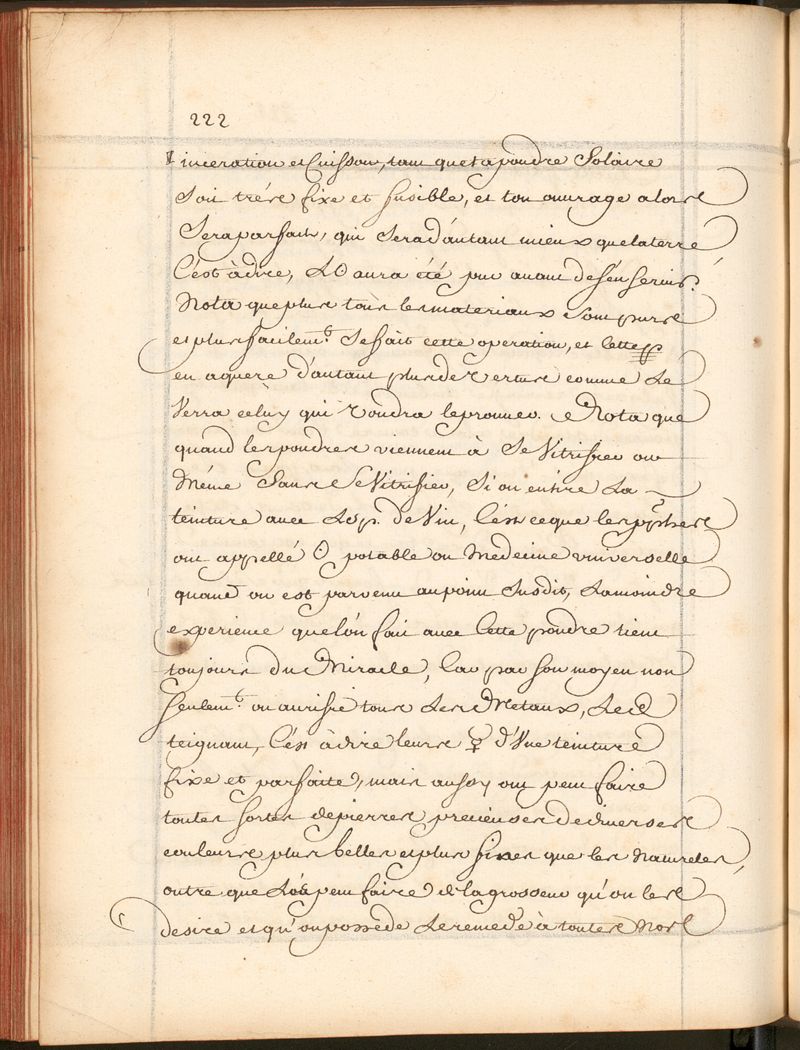 222
inceration et Cuisson, tant que ta poudre Solaire
Soit trés fixe et fusible, et ton ouurage alors
Sera parfait, qui Sera d'autant mieux que la terre
C'est à dire, L'☉ aura été pur auant de s'en seruir.
Nota que plus tous les materiaux Sont purs
et plus facilem.t Se fait cette operation, et cette
en aquere d'autant plus de Vertus comme Le
Verra celuy qui Voudra l'eprouuer. Nota que
quand les poudres viennent à Se Vitrifier ou
Méme Sans Se Vitrifier, Si on en tire La
teinture auec L'esp. de Vin, C'est ce que les pphes
ont appellé ☉ potable ou Medecine vniverselle
quand on est parvenu au point Susdit, La moindre
experience que l'ón fait auec Cette poudre tient
toujours du Miracle, Car par son moyen non
seulem.t on aurifie tous Les Metaux, Les
teignant, C'est à dire leurs ☿ d'Vne teinture
fixe et parfaite, mais aussy on peut faire
toutes sortes de pierres precieuses de diuerses
couleurs plus belles et plus fixes que les Naturelles,
outre que L'on peut faire de la grosseur qu'on les
desire et qu'on possede Le remede à toutes Nos